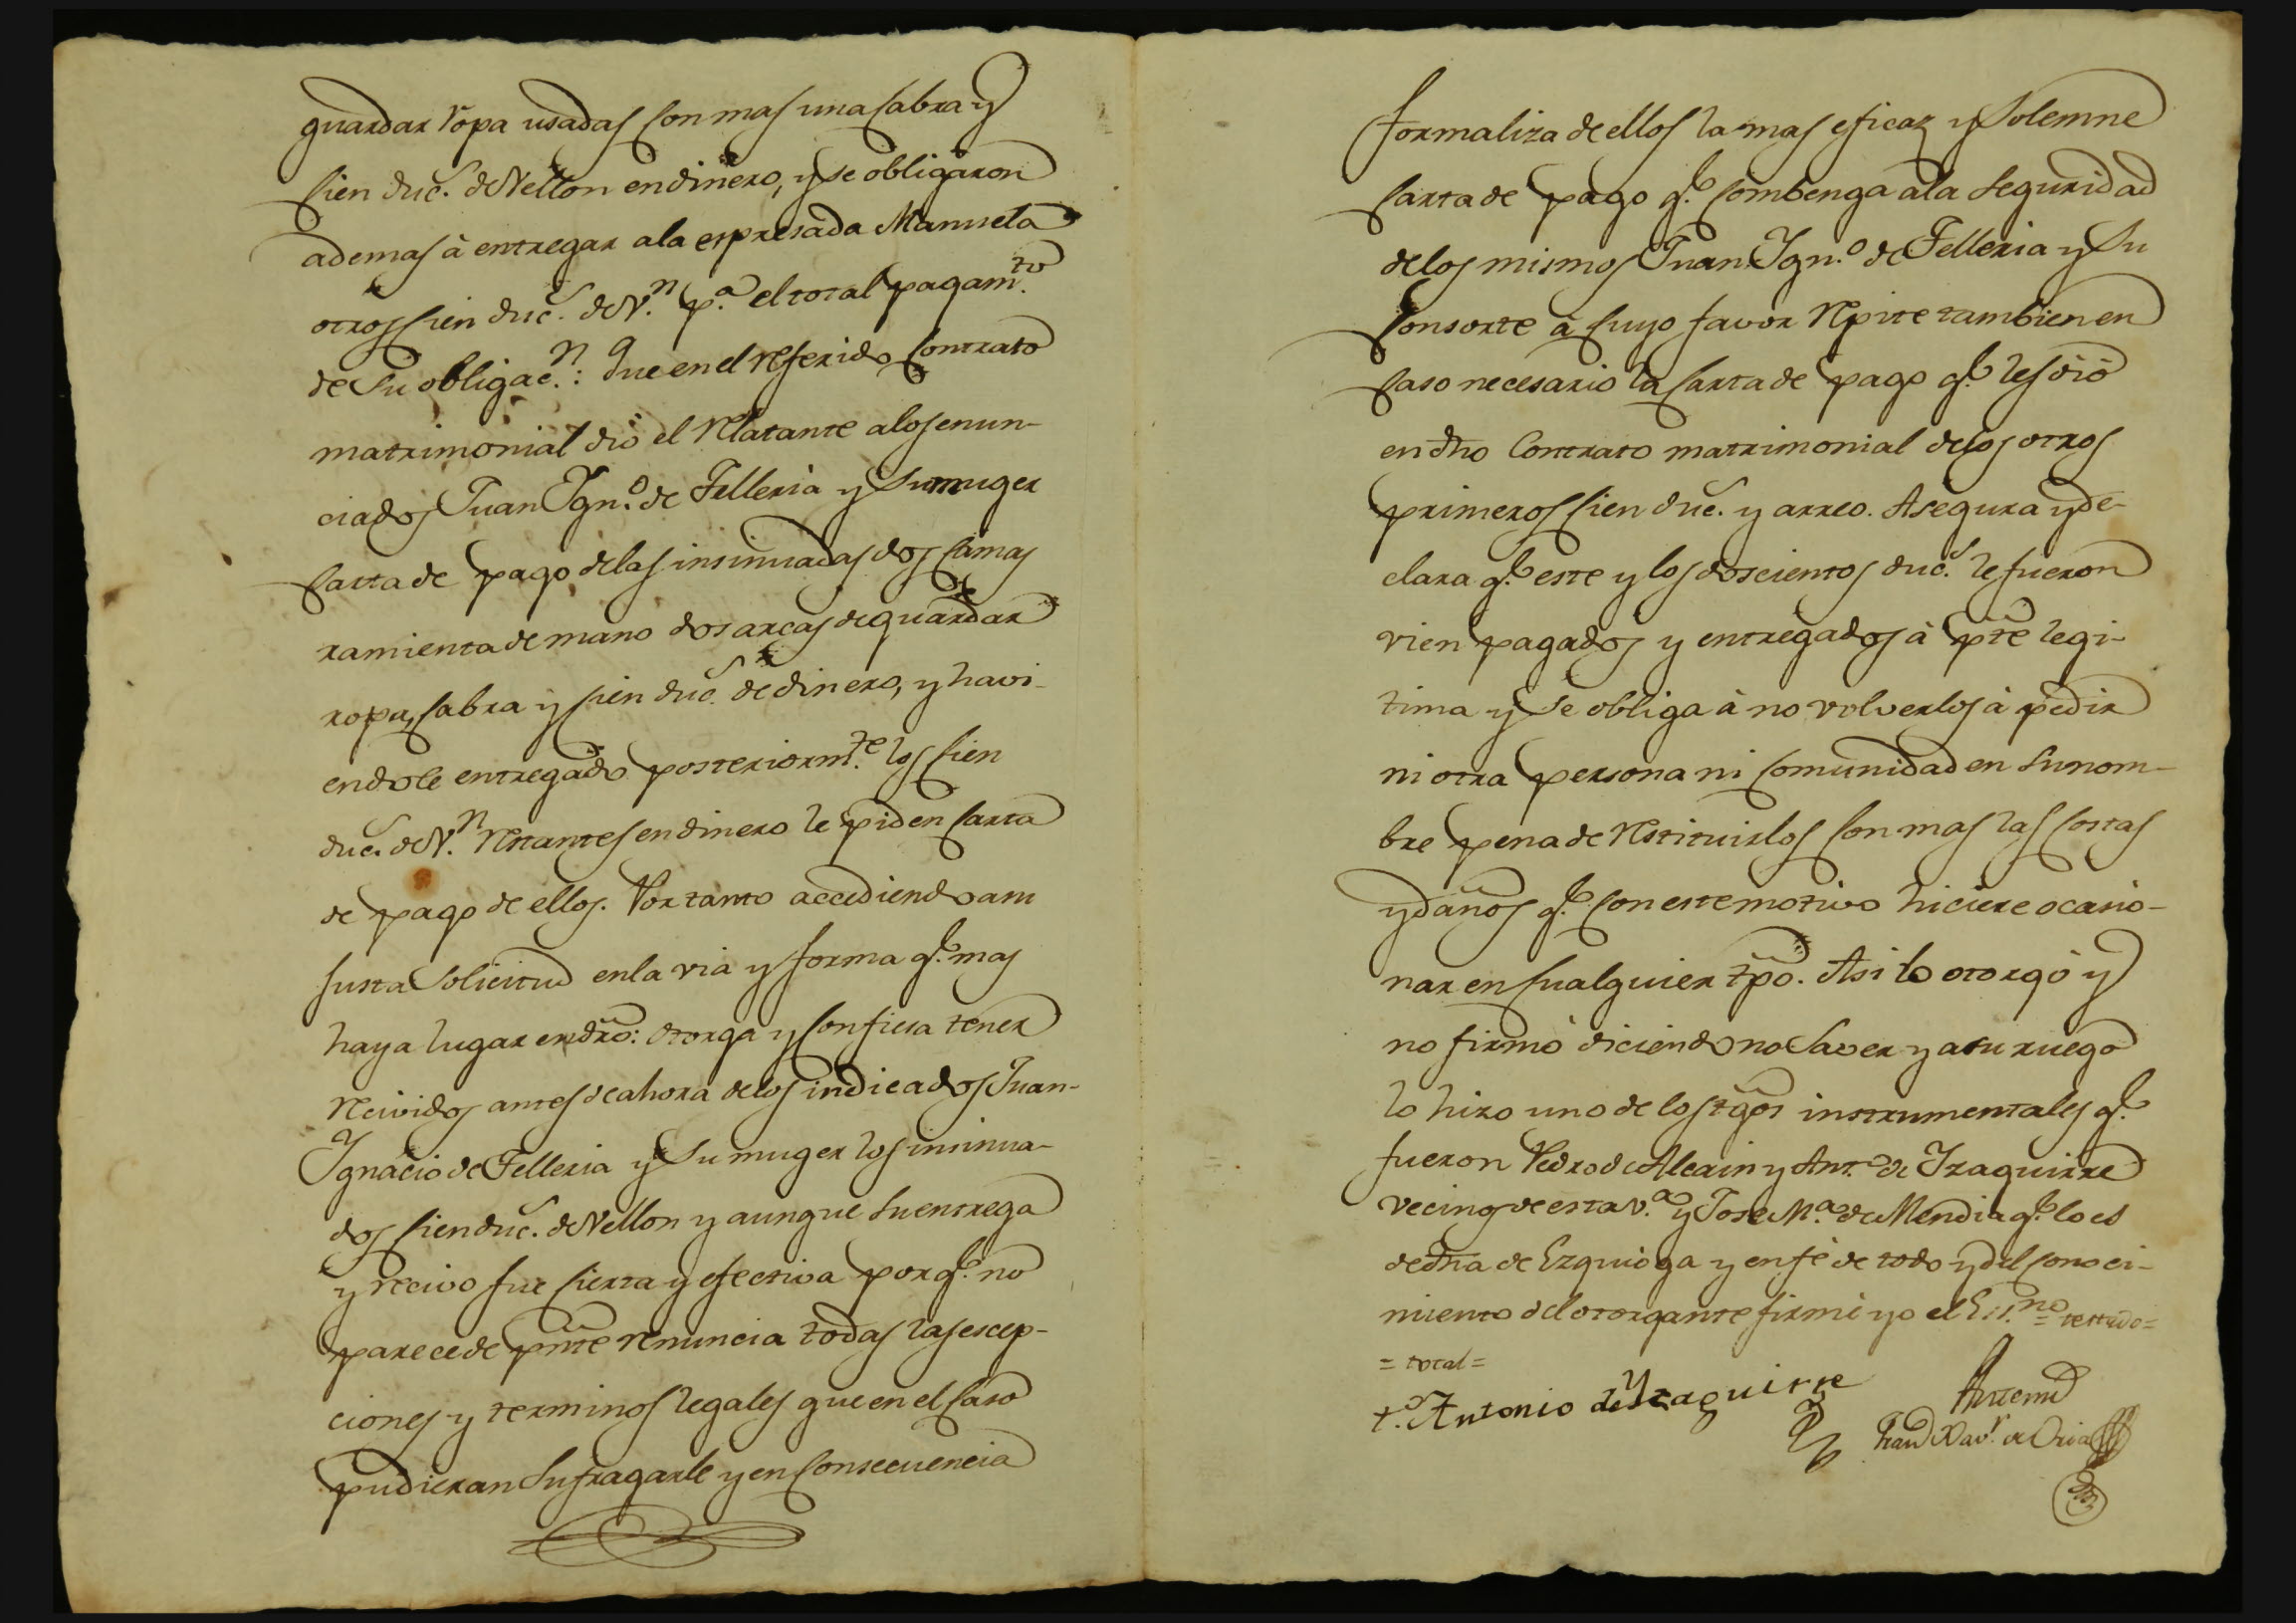 guardar ropa usadas con mas una cabra y
cien duc.s de Vellon en dinero, y se obligaron
ademas à entregar ala espresada Manuela
otros cien duc.s de V.n p.a el total pagam.to
de su obligac.n: Que en el referido contrato
matrimonial diò el relatante a los enun-
ciados Juan Ygn.o de Telleria y su muger
carta de pago de las insinuadas dos camas
ramienta de mano dos arcas de guardar
ropa, cabra y cien duc.s de dinero, y havi-
endole entregado posteriorm.te los cien
duc.s de V.n restantes en dinero le piden carta
de pago de ellos. Por tanto accediendo a su
justa solicitud en la via y forma q.e mas
haya lugar en dro: Otorga y confiesa tener
recividos antes de ahora de los indicados Juan-
Ygnacio de Telleria y su muger los insinua-
dos cien duc.s de Vellon y aunque su entrega
y recivo fue cierta y efectiva por q.e no
parece de pnte renuncia todas las escep-
ciones y terminos legales que en el caso
pudieran sufragarle y en consecuencia
formaliza de ellos la mas eficaz y solemne
carta de pago q.e combenga ala seguridad
de los mismos Juan Ygn.o de Telleria y su
consorte à cuyo favor repite tambien en
caso necesario la carta de pago q.e les diò
en dho contrato matrimonial de los otros
primeros cien duc.s y arreo. Asegura y de-
clara q.e este y los doscientos duc.s le fueron
vien pagados y entregados à pte legi-
tima y se obliga à no volverlos à pedir
ni otra persona ni comunidad en su nom-
bre pena de restituirlos con mas las costas
y daños q.e con este motivo hiciere ocasio-
nar en cualquier tpo. Asi lo otorgò y
no firmò diciendo no saver y a su ruego
lo hizo uno de los tgos instrumentales q.e
fueron Pedro de Alcain y Ant.o de Yzaguirre
vecinos de esta v.a y Jose M.a de Mendia q.e lo es
de dha de Ezquioga y en fè de todo y del conoci-
miento del otorgante firmè yo el Es.no = testado =
= total =
t.o Antonio de Yzaguirre
Antemi
Fran.co Xav.r de Oria